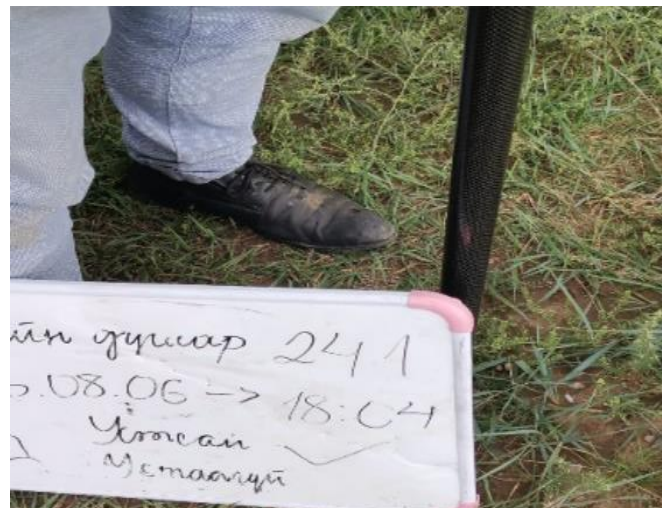 ийн дугаар 241
5.08.06 -> 18:04
Үлжсан
Устаагүй